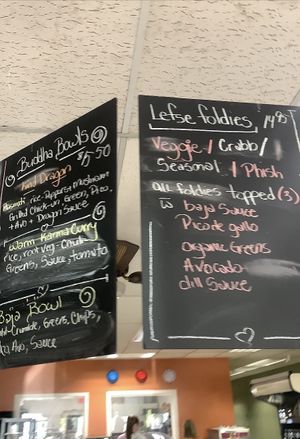 Buddha Bowls
$5-50
Kind Dragon
Basmati rice, Peppers, mushroom
Grilled Chick-un, Greens, Pico,
+ Avo + Dragon Sauce
Warm Karma Curry
rice, root veg, Chuk-
Greens, Sauce, tomato
Baja Bowl
Crumble, Greens, Chips,
Avo, Sauce
Lefse foldies,
Veggie / Crabby /
Seasonal / Phish
All foldies topped (3)
baja Sauce
Pico de gallo
organic Greens
Avocado
dill Sauce